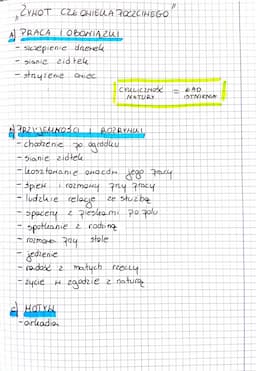 "ŻYWOT CZŁOWIEKA POCZCIWEGO"
A) PRACA I OBOWIĄZKI
- szczepienie drzewek
- sianie ziółek
- strzyżenie owiec
CYKLICZNOŚĆ NATURY = ŁAD ISTNIENIA
B) PRZYJEMNOŚCI I ROZRYWKI
- chodzenie po ogródku
- sianie ziółek
- kosztowanie owoców jego pracy
- śpiew i rozmowy przy pracy
- ludzkie relacje ze służbą
- spacery z pieskami po polu
- spotkanie z rodziną
- rozmowa przy stole
- jedzenie
- radość z małych rzeczy
- życie w zgodzie z naturą
C) MOTYW
- arkadia